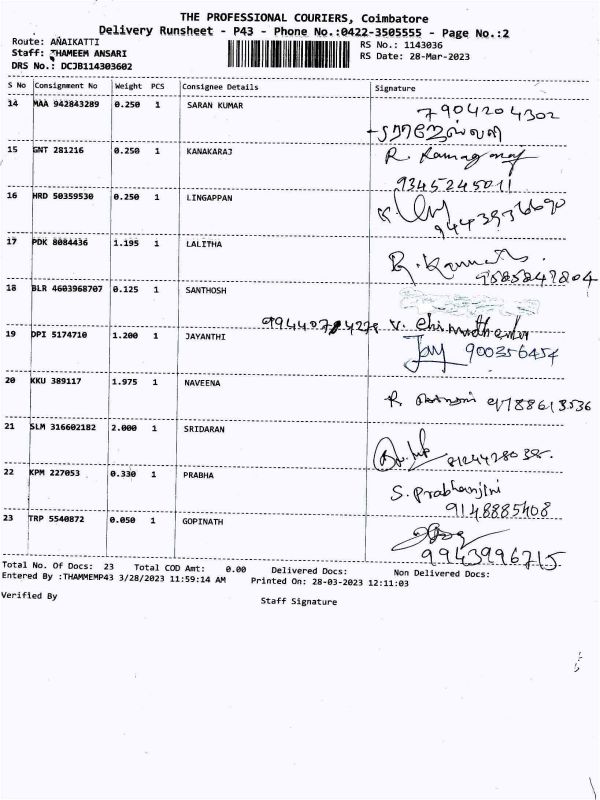 THE PROFESSIONAL COURIERS, Coimbatore
Delivery Runsheet - P43 - Phone No.:0422-3505555 - Page No.:2
Route: ANAIKATTI
RS No.: 1143036
Staff: THAMEEM ANSARI
RS Date: 28-Mar-2023
DRS No.: DCJB114303602
S No Consignment No Weight PCS Consignee Details Signature
14 MAA 942843289 0.250 1 SARAN KUMAR 7904204302
15 GNT 281216 0.250 1 KANAKARAJ R.
9345245011
16 HRD 50359530 0.250 1 LINGAPPAN
17 PDK 8084436 1.195 1 LALITHA
18 BLR 4603968707 0.125 1 SANTHOSH
19 DPI 5174710 1.200 1 JAYANTHI Jay 900356454
20 KKU 389117 1.975 1 NAVEENA R
21 SLM 316602182 2.000 1 SRIDARAN
22 KPM 227053 0.330 1 PRABHA S. Prabhanjini
9148885408
23 TRP 5540872 0.050 1 GOPINATH
9943996715
Total No. Of Docs: 23 Total COD Amt: 0.00 Delivered Docs: Non Delivered Docs:
Entered By :THAMMEMP43 3/28/2023 11:59:14 AM Printed On: 28-03-2023 12:11:03
Verified By
Staff Signature